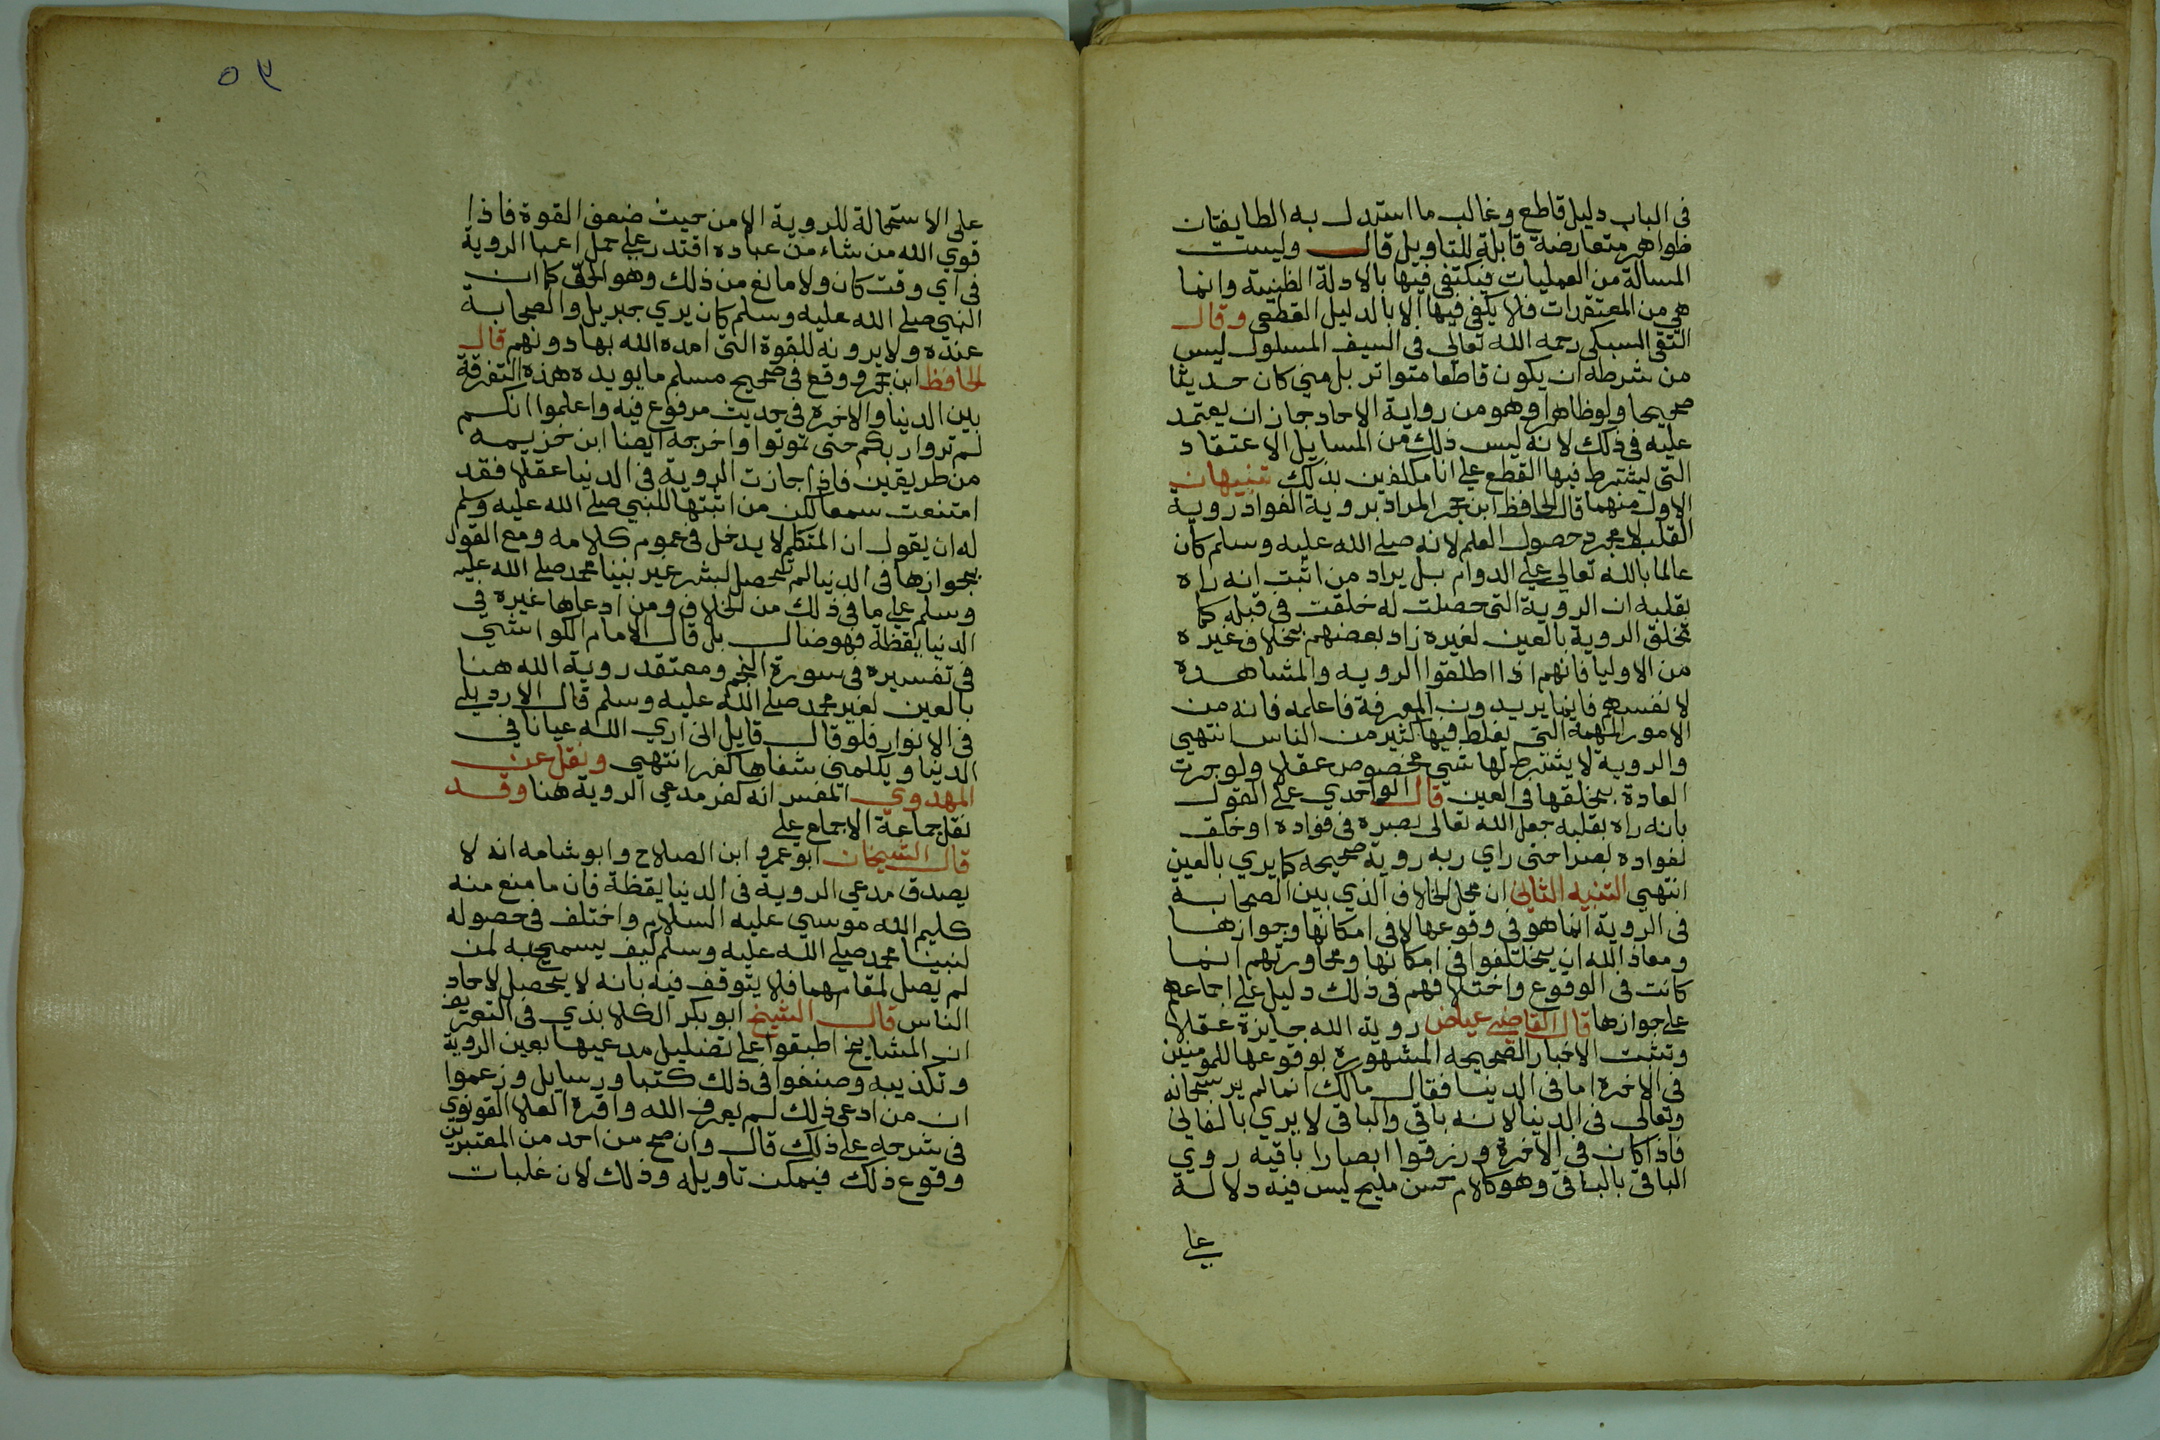 في الباب دليل قاطع وغالب ما استدل به الطايفتان
ظواهر متعارضة قابلة للتاويل قال وليست
المسالة من العمليات فيكتفي فيها بالادلة الظنية وانما
هي من المعتقدات فلا يكفي فيها الا بالدليل القطعي وقال
التقي السبكي رحمه الله تعالي في السيف المسلول ليس
من شرطه ان يكون قاطعا متواتر بل متي كان حديثا
صحيحا ولو ظاهرا وهو من رواية الاحاد جاز ان يعتمد
عليه في ذلك لانه ليس ذلك من المسايل الاعتقاد
التي يشترط فيها القطع علي انا مكلفين بذلك تنبيهان
الاول منهما قال الحافظ ابن حجر المراد بروية الفواد روية
القلب لا مجرد حصول العلم لانه صلي الله عليه وسلم كان
عالما بالله تعالي علي الدوام بل يراد من اثبت انه راه
بقلبه ان الروية التي حصلت له خلقت في قبله كما
تخلق الروية بالعين لغيره زاد بعضهم بخلاف غيره
من الاوليا فانهم اذا اطلقوا الرويه والمشاهده
لانفسهم فانما يريدون المعرفة فاعلمه فانه من
الامور المهمة التي يغلط فيها كثير من الناس انتهي
والروية لا يشترط لها شي مخصوص عقلا ولو جرت
العادة بخلقها في العين قال الواحدي علي القول
بانه راه بقلبه جعل الله تعالي بصره في فواده او خلق
لفواده بصرا حتي راي ربه روية صحيحه كما يري بالعين
انتهي التنبيه الثاني ان محل الخلاف الذي بين الصحابة
في الروية انما هو في وقوعها لا في امكانها وجوازها
ومعاذ الله ان يختلفوا في امكانها ومحاورتهم انما
كانت في الوقوع واختلافهم في ذلك دليل علي اجماعهم
علي جوازها قال القاضي عياض روية الله جايزة عقلا
وثبتت الاخبار الصحيحه المشهورة بوقوعها للمومنين
في الاخرة اما في الدنيا فقال مالك انما لم ير سبحانه
وتعالي في الدنيا لانه باقي والباقي لا يري بالفاني
فاذا كان في الاخرة ورزقوا ابصارا باقيه روي
الباقي بالباقي وهو كلام حسن مليح ليس فيه دلالة
علي
٥٣
علي الاستحالة للروية الا من حيث ضعف القوة فاذا
قوي الله من شاء من عباده اقتدر علي حمل اعبا الروية
في اي وقت كان ولا مانع من ذلك وهو الحق كما ان
النبي صلي الله عليه وسلم كان يري جبريل والصحابة
عنده ولا يرونه للقوة التي امده الله بها دونهم قال
الحافظ ابن حجر ووقع في صحيح مسلم ما يويد هذه التفرقة
بين الدنيا والاخرة في حديث مرفوع فيه واعلموا انكم
لم تروا ربكم حتي تموتوا واخرجه ايضا ابن خزيمه
من طريقين فاذا جازت الروية في الدنيا عقلا فقد
امتنعت سمعا لكن من اثبتها للنبي صلي الله عليه وسلم
له ان يقول ان المتكلم لا يدخل في عموم كلامه ومع القول
بجوازها في الدنيا لم تحصل لبشر غير نبينا محمد صلي الله عليه
وسلم علي ما في ذلك من الخلاف ومن ادعاها غيره في
الدنيا يقظة فهو ضال بل قال الامام الكواشي
في تفسيره في سورة النجم ومعتقد روية الله هنا
بالعين لغير محمد صلي الله عليه وسلم قال الاردبيلي
في الانوار فلو قال قايل اني اري الله عيانا في
الدنيا ويكلمني شفاها كفر انتهي ونقل عن
المهدوي المفسر انه كفر مدعي الروية هنا وقد
نقل جماعة الاجماع علي
قال الشيخان ابو عمرو ابن الصلاح وابو شامه انه لا
يصدق مدعي الروية في الدنيا يقظة فان ما منع منه
كليم الله موسي عليه السلام واختلف في حصوله
لنبينا محمد صلي الله عليه وسلم كيف يسمح به لمن
لم يصل لمقامهما فلا يتوقف فيه بانه لا يحصل لاحاد
الناس قال الشيخ ابو بكر الكلاباذي في التعرف
ان المشايخ اطبقوا علي تضليل مدعيها بعين الروية
وتكذيبه وصنفوا في ذلك كتبا ورسايل وزعموا
ان من ادعي ذلك لم يعرف الله واقره العلا القونوي
في شرحه علي ذلك قال وان صح من احد من المعتبرين
وقوع ذلك فيمكن تاويله وذلك لان غلبات